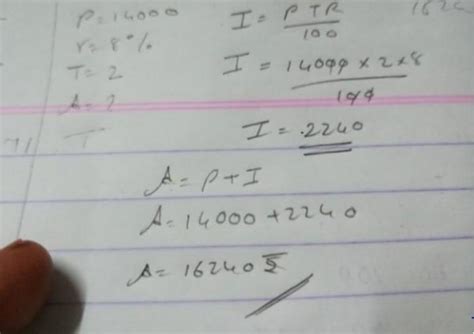 P=14000
r=8%
T=2
A=?
I = PTR/100
I = 14000×2×8/100
I = 2240
A=P+I
A=14000+2240
A=16240